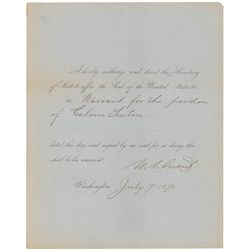 I hereby authorize and direct the Secretary
of State to affix the Seal of the United States to
a Warrant for the pardon
of Calvin Sexton
dated this day and signed by me and for so doing this
shall be his warrant.
U. S. Grant
Washington July 7 1871